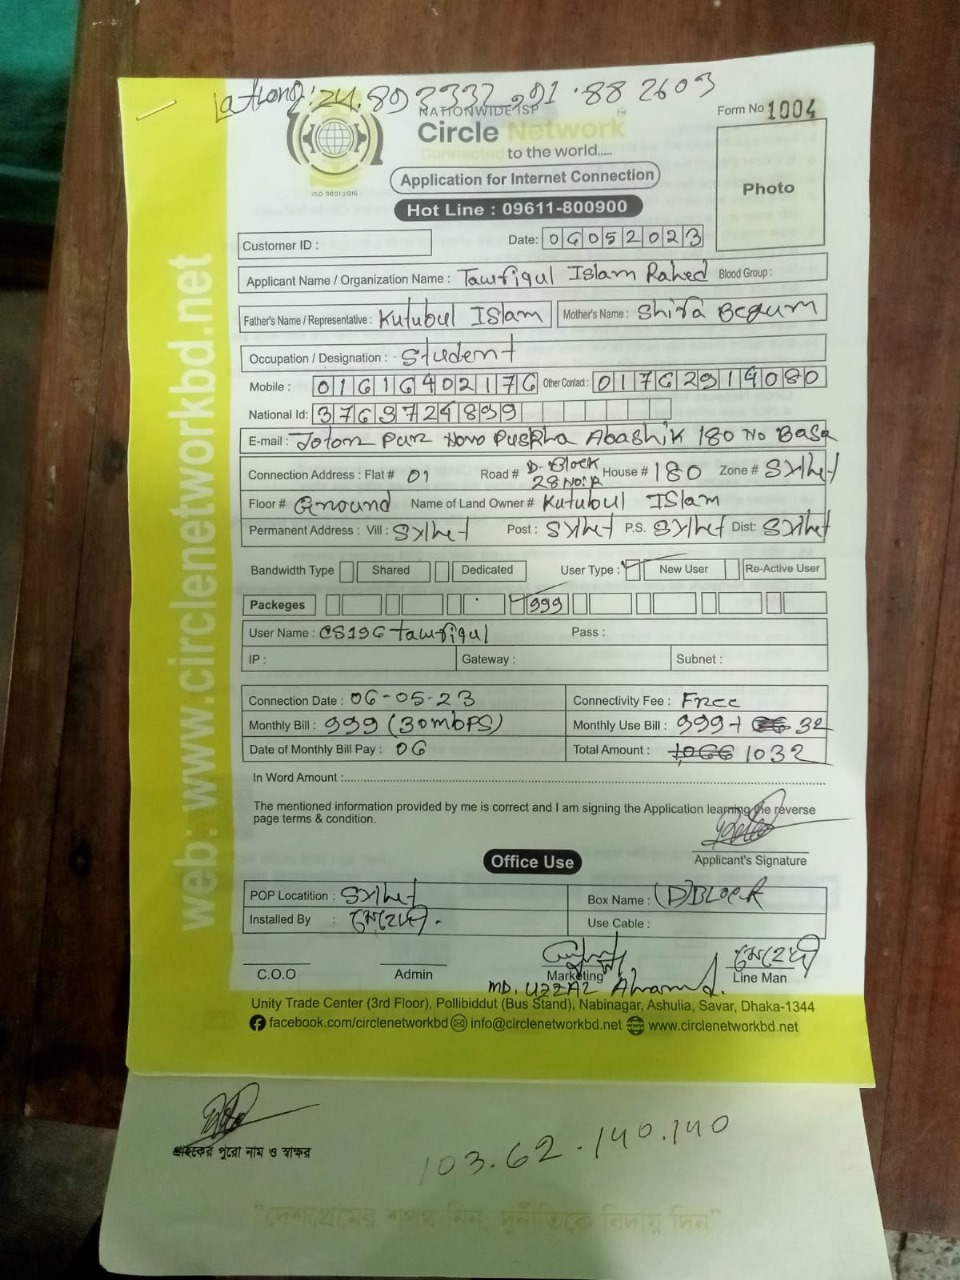 Lathong: 24.802332, 91.882603
NATIONWIDE ISP
Circle Network
to the world.....
Form No 1004
ISO 9001:2015
Application for Internet Connection
Photo
Hot Line : 09611-800900
Customer ID :
Date: 06052023
Applicant Name / Organization Name : Tawfiqul Islam Rahed Blood Group :
Father's Name / Representative : Kutubul Islam Mother's Name : Shifa Begum
Occupation / Designation : Student
Mobile : 01616402176 Other Contact : 01762914080
National Id: 3763724899
E-mail : Jotor Pur Novo Puskha Abashik 180 No Basa
Connection Address : Flat # 01 Road # D-Block 28 No: House # 180 Zone # Sylhet
Floor # Ground Name of Land Owner # Kutubul Islam
Permanent Address : Vill : Sylhet Post : Sylhet P.S. Sylhet Dist: Sylhet
Bandwidth Type Shared Dedicated User Type : New User Re-Active User
Packeges 999
User Name : CS196tawfiqul Pass :
IP : Gateway : Subnet :
Connection Date : 06-05-23 Connectivity Fee : Free
Monthly Bill : 999 (30mbps) Monthly Use Bill : 999+ 32
Date of Monthly Bill Pay : 06 Total Amount : 1066 1032
In Word Amount :
The mentioned information provided by me is correct and I am signing the Application learning the reverse
page terms & condition.
Applicant's Signature
Office Use
POP Locatition : Sylhet Box Name : (D) Block
Installed By : মেহেদী. Use Cable :
C.O.O Admin Marketing মেহেদী Line Man
MD. UZZAL
Unity Trade Center (3rd Floor), Pollibiddut (Bus Stand), Nabinagar, Ashulia, Savar, Dhaka-1344
facebook.com/circlenetworkbd info@circlenetworkbd.net www.circlenetworkbd.net
web: www.circlenetworkbd.net
গ্রাহকের পুরো নাম ও স্বাক্ষর
103.62.140.140
"দেশপ্রেমের শপথ নিন, দুর্নীতিকে বিদায় দিন"